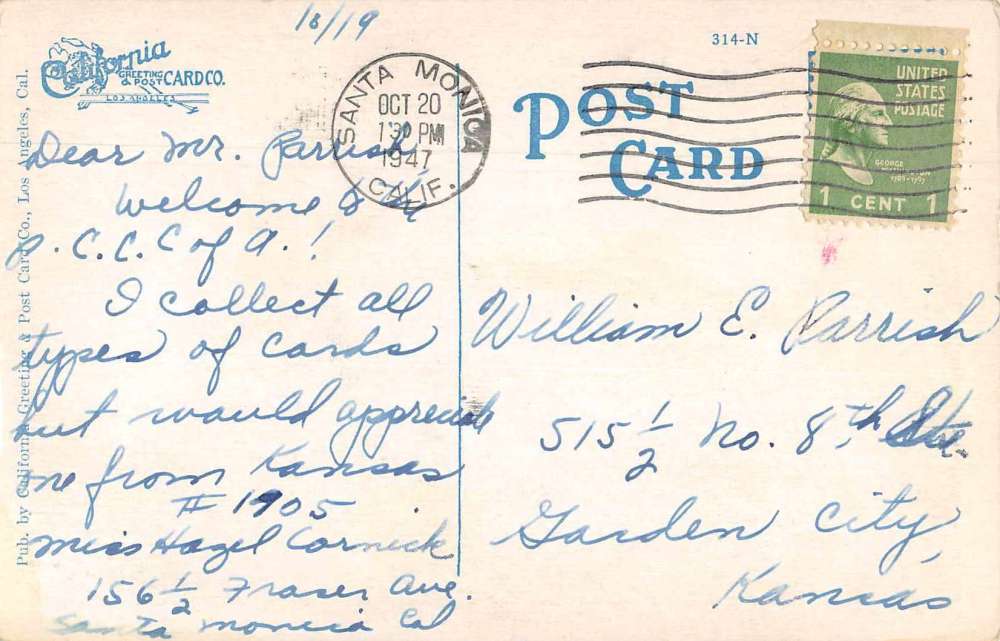 10/19
314-N
California
GREETING
& POST CARD CO.
LOS ANGELES
SANTA MONICA
OCT 20
1 30 PM
1947
CALIF.
POST
CARD
UNITED
STATES
POSTAGE
GEORGE
WASHINGTON
1789-1797
1 CENT 1
Pub. by California Greeting & Post Card Co., Los Angeles, Cal.
Dear Mr. Parrish,
Welcome to
P.C.C.C of A.!
I collect all
types of cards
but would appreciate
one from Kansas
# 1905
Miss Hazel Cornick
156 1/2 Fraser Ave.
Santa Monica Cal
William E. Parrish
515 1/2 No. 8th
Garden City,
Kansas